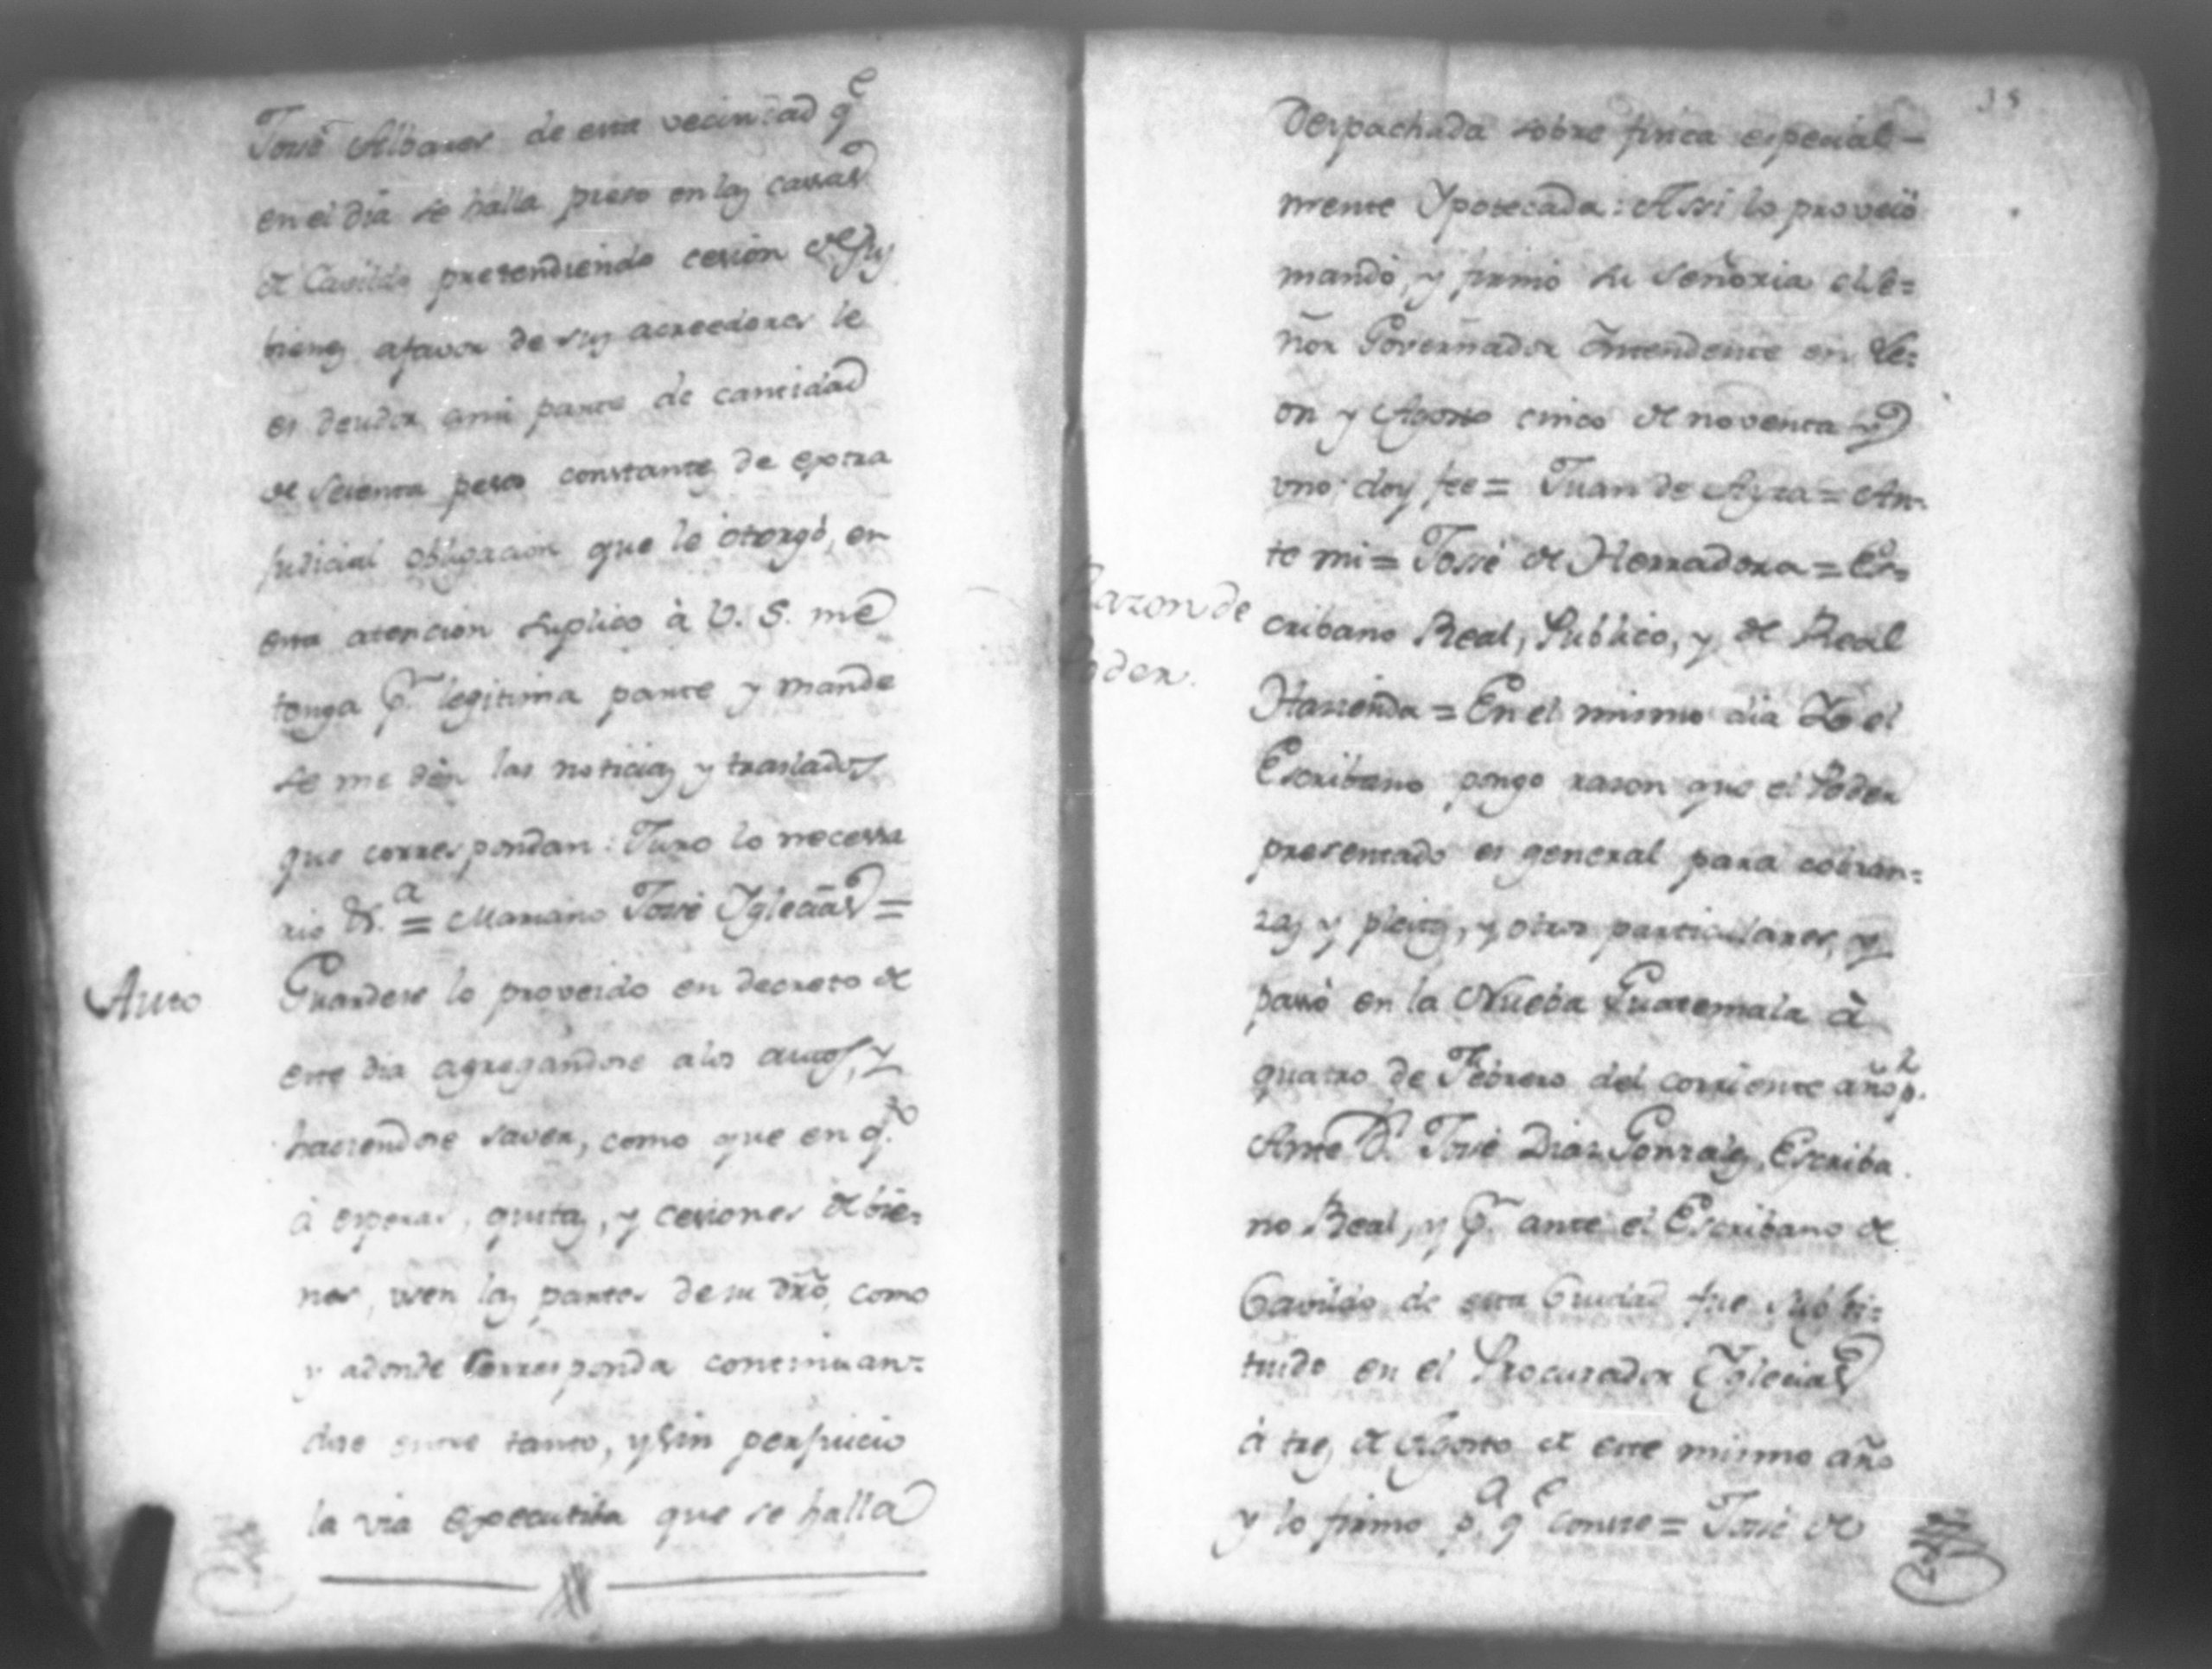 Josè Albares de esta vecindad q.e
en el dia se halla preso en las cassas
de Cavildo pretendiendo cesion de sus
bienes afavor de sus acreedores le
es deudor ami parte de cantidad
de secenta pesos constantes de extra
judicial obligacion que le otorgó, en
esta atencion suplico à V. S. me
tenga p.r legitima parte y mande
se me dèn las noticias y traslados
que correspondan: Juro lo necessa
rio &.a = Mariano Josè Yglecias =
Auto
Guardese lo proveido en decreto de
este dia agregandose alos autos, y
haciendose saver, como que en q.to
à esperas, quitas, y cesiones de bie-
nes, usen las partes de su dro, como
y adonde corresponda continuan-
dose entre tanto, y sin perjuicio
la via executiba que se halla
35
Despachada sobre finca especial-
mente Ypotecada: Assi lo proveiò
mandò, y firmò su señoria el Se=
ñor Governador Yntendente en Le-
on y Agosto cinco de noventa y
uno: doy fee = Juan de Ayssa = An-
te mi = Josè de Herradora = Es-
cribano Real, Publico, y de Real
Hacienda = En el mismo dia Yo el
Razon de
Poder.
Escribano pongo razon que el Poder
presentado es general para cobran=
zas y pleitos, y otros particulares, y
passò en la Nueba Guatemala à
quatro de Febrero del corriente año p.r
Ante D.n Josè Diaz Gonzales, Escriba
no Real, y p.r ante el Escribano de
Cavildo de esta Ciudad fue substi=
tuido en el Procurador Yglecias
à tres de Agosto de este mismo año
y lo firmo p.a q.e conste = Josè de